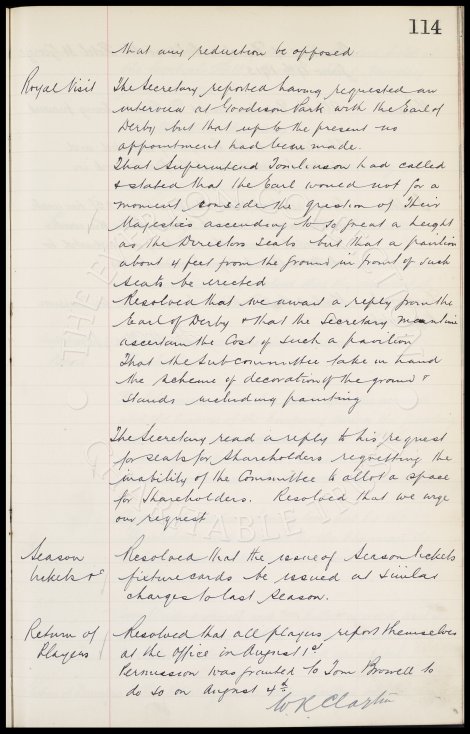 114
that any reduction be opposed
Royal Visit
The Secretary reported having requested an
interview at Goodison Park with the Earl of
Derby but that up to the present no
appointment had been made.
That Superintend Tomlinson had called
& stated that the Earl would not for a
moment conside the question of Their
Majesties ascending to so great a height
as the Directors Seats but that a pavilion
about 4 feet from the ground in front of such
Seats be erected
Resolved that we await a reply from the
Earl of Derby & that the Secretary meantime
ascertain the Cost of Such a pavilion
That the Sub committee take in hand
the Scheme of decoration of the ground &
Stands including painting
The Secretary read a reply to his request
for seats for Shareholders regretting the
inability of the Committee to allot a space
for Shareholders. Resolved that we urge
our request
Season
tickets &c
Resolved that the issue of Season tickets
fixture cards be issued at Similar
charges to last Season.
Return of
Players
Resolved that all players report themselves
at the office in August 1st
Permission was granted to Tom Browell to
do so on August 4th
W R Clayton